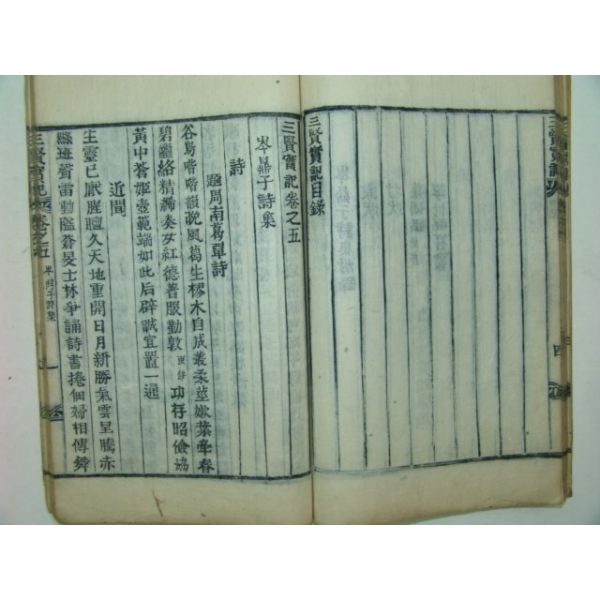 三賢實記目錄
四
三賢實記卷之五
岑鼎子詩集
詩
題周南葛覃詩
谷鳥喈喈韻晩風葛生樛木自成叢柔莖嫩葉牽春
碧纖絡精 女紅德著服勤敦 功存昭儉恊
黃中蒼姬壼範端如此后辟誠宜置一通
近聞
生靈已厭腥膻久天地重開日月新勝氣雲呈騰赤
縣班 雷動 蒼旻士林爭誦詩書捲個 相傳舞
三賢實記 卷之五 岑鼎子詩集